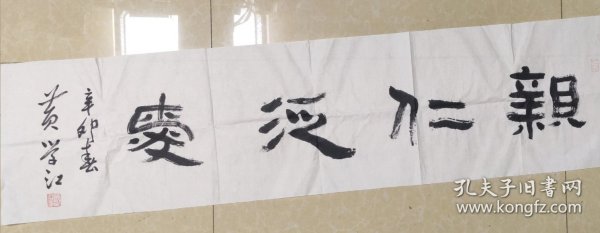 親仁泛愛
辛卯春
黄学江
孔夫子旧书网
www.kongfz.com